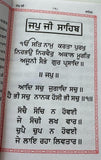 ਜਪੁ ਜੀ ਸਾਹਿਬ
ੴ ਸਤਿ ਨਾਮੁ ਕਰਤਾ ਪੁਰਖੁ
ਨਿਰਭਉ ਨਿਰਵੈਰੁ ਅਕਾਲ ਮੂਰਤਿ
ਅਜੂਨੀ ਸੈਭੰ ਗੁਰ ਪ੍ਰਸਾਦਿ ॥
॥ ਜਪੁ ॥
ਆਦਿ ਸਚੁ ਜੁਗਾਦਿ ਸਚੁ ॥
ਹੈ ਭੀ ਸਚੁ ਨਾਨਕ ਹੋਸੀ ਭੀ ਸਚੁ ॥੧॥
ਸੋਚੈ ਸੋਚਿ ਨ ਹੋਵਈ
ਜੇ ਸੋਚੀ ਲਖ ਵਾਰ ॥
ਚੁਪੈ ਚੁਪ ਨ ਹੋਵਈ
ਜੇ ਲਾਇ ਰਹਾ ਲਿਵਤਾਰ ॥